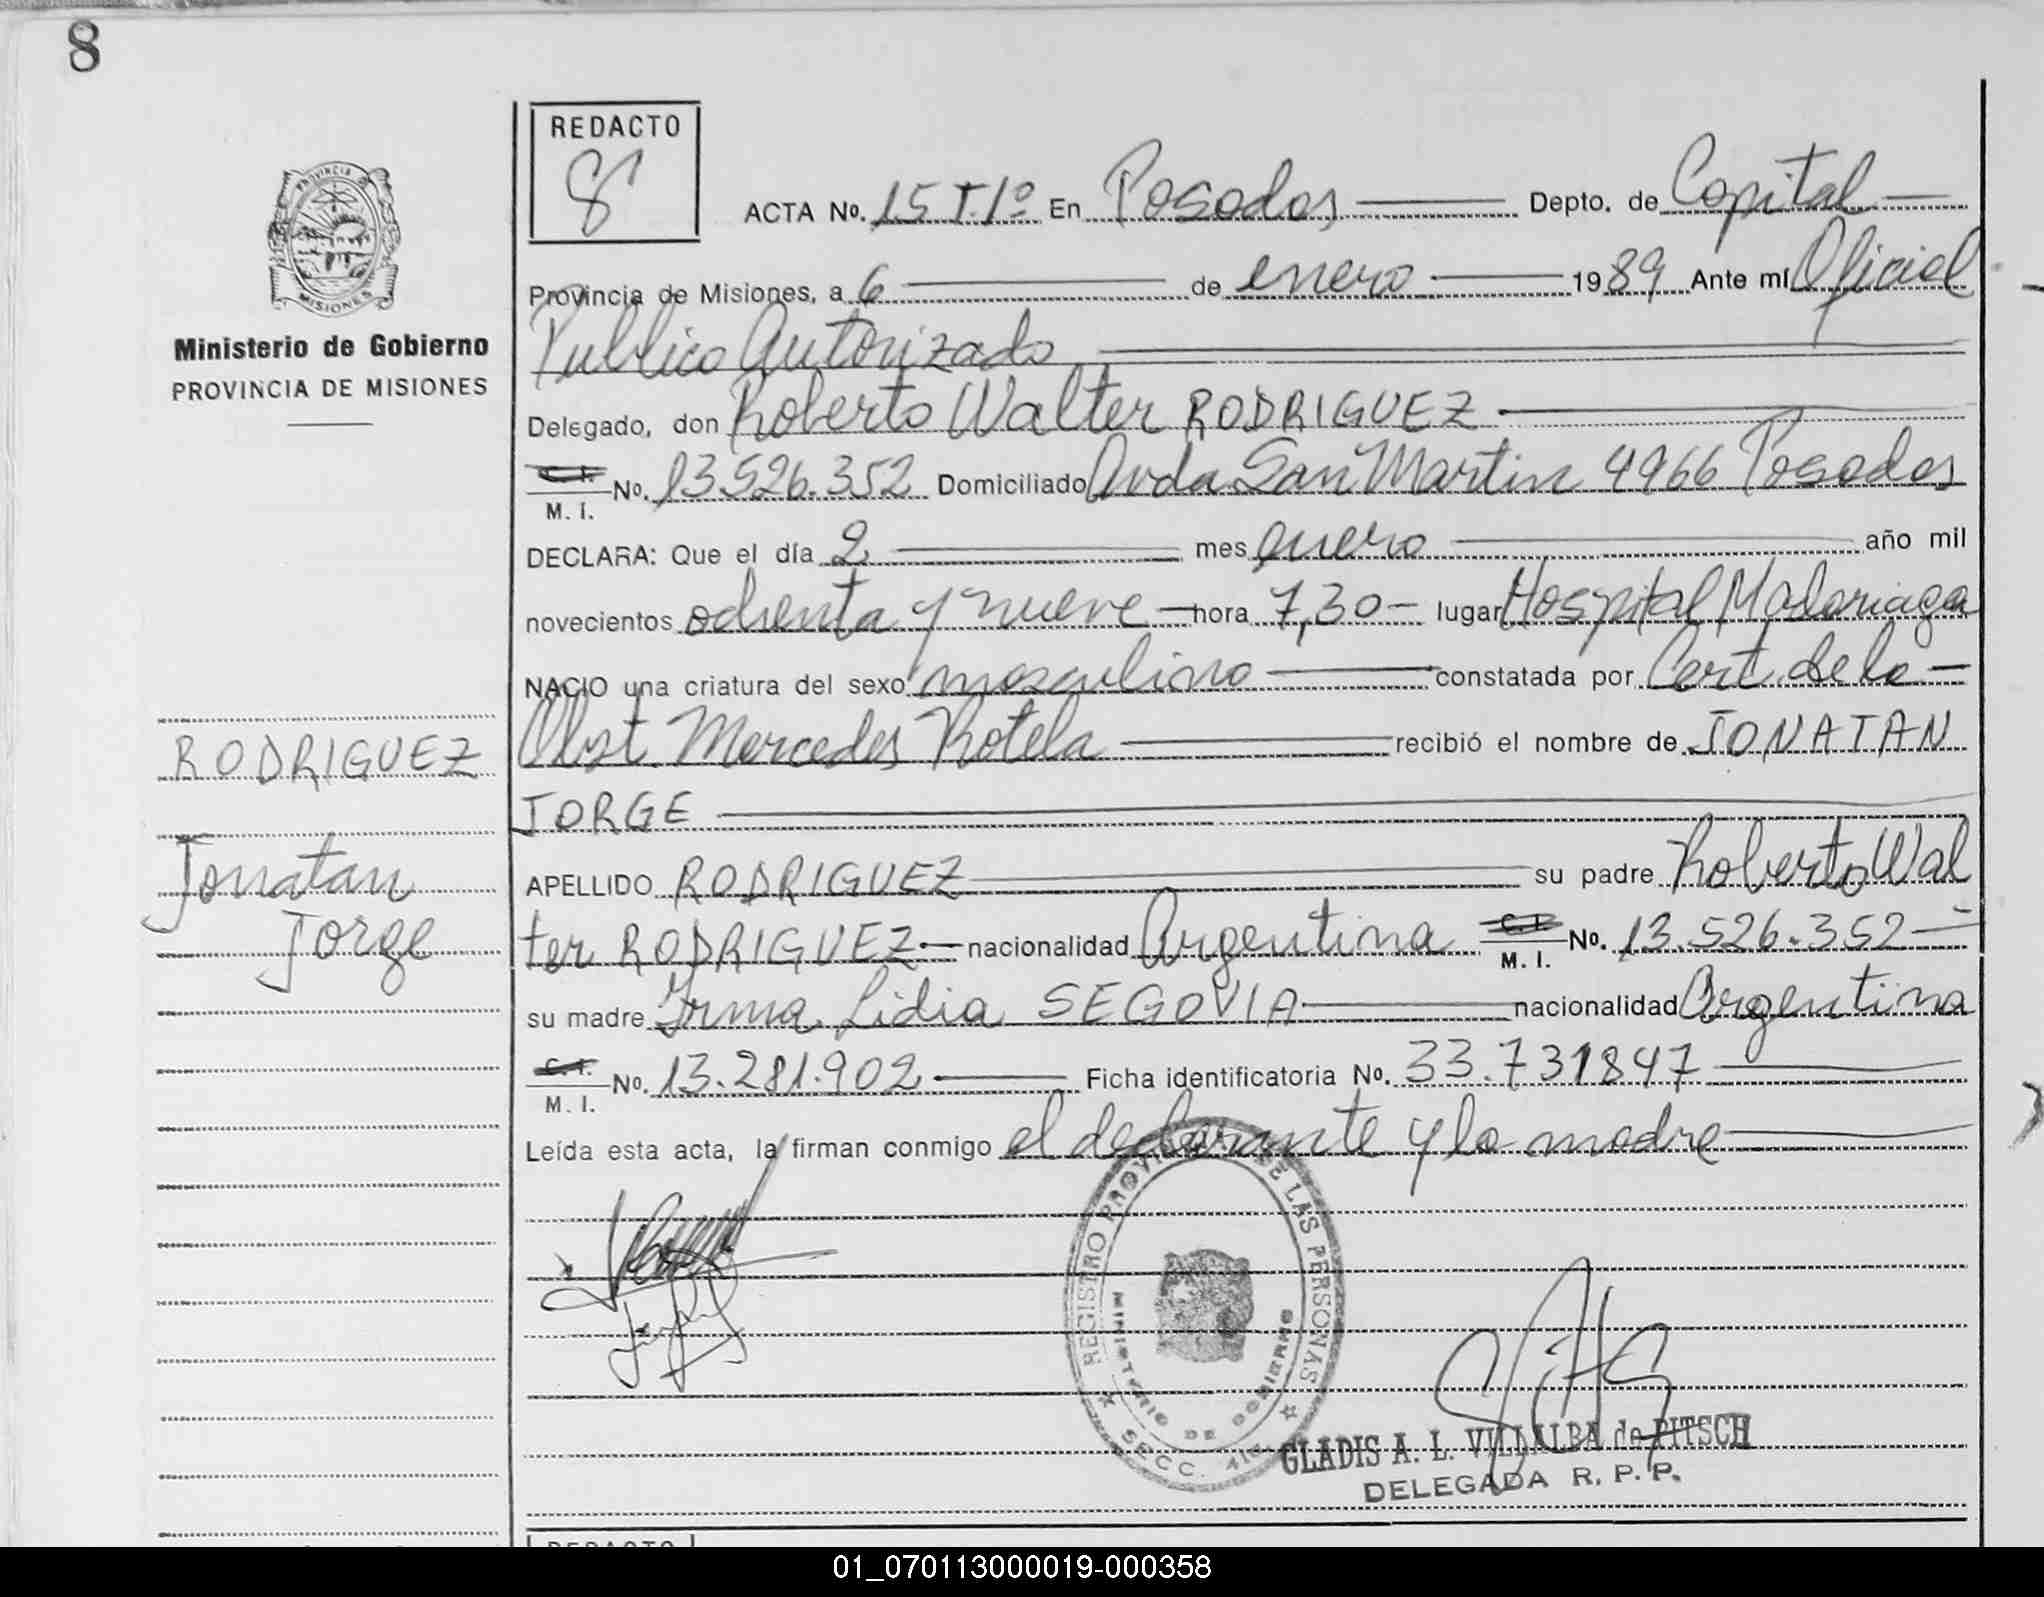 8
PROVINCIA
MISIONES
Ministerio de Gobierno
PROVINCIA DE MISIONES
RODRIGUEZ
Jonatan
Jorge
REDACTO
8
ACTA No. 15 T.1º En Posadas Depto. de Capital
Provincia de Misiones, a 6 de enero 1989 Ante mí Oficial
Publico Autorizado
Delegado, don Roberto Walter RODRIGUEZ
C. I.
M. I. No. 13.526.352 Domiciliado Avda San Martin 4966 Posadas
DECLARA: Que el día 2 mes enero año mil
novecientos ochenta y nueve hora 7,30 lugar Hospital Madariaga
NACIO una criatura del sexo masculino constatada por Cert. de la
Obst. Mercedes Rotela recibió el nombre de JONATAN
JORGE
APELLIDO RODRIGUEZ su padre Roberto Wal
ter RODRIGUEZ nacionalidad Argentina C. I. M. I. No. 13.526.352
su madre Irma Lidia SEGOVIA nacionalidad Argentina
C. I.
M. I. No. 13.281.902 Ficha identificatoria No. 33.731847
Leída esta acta, la firman conmigo el declarante y la madre
REGISTRO PROVINCIAL DE LAS PERSONAS
MINISTERIO DE GOBIERNO
SECC.
GLADIS A. L. VILLALBA de PITSCH
DELEGADA R. P. P.
REDACTO
01_070113000019-000358